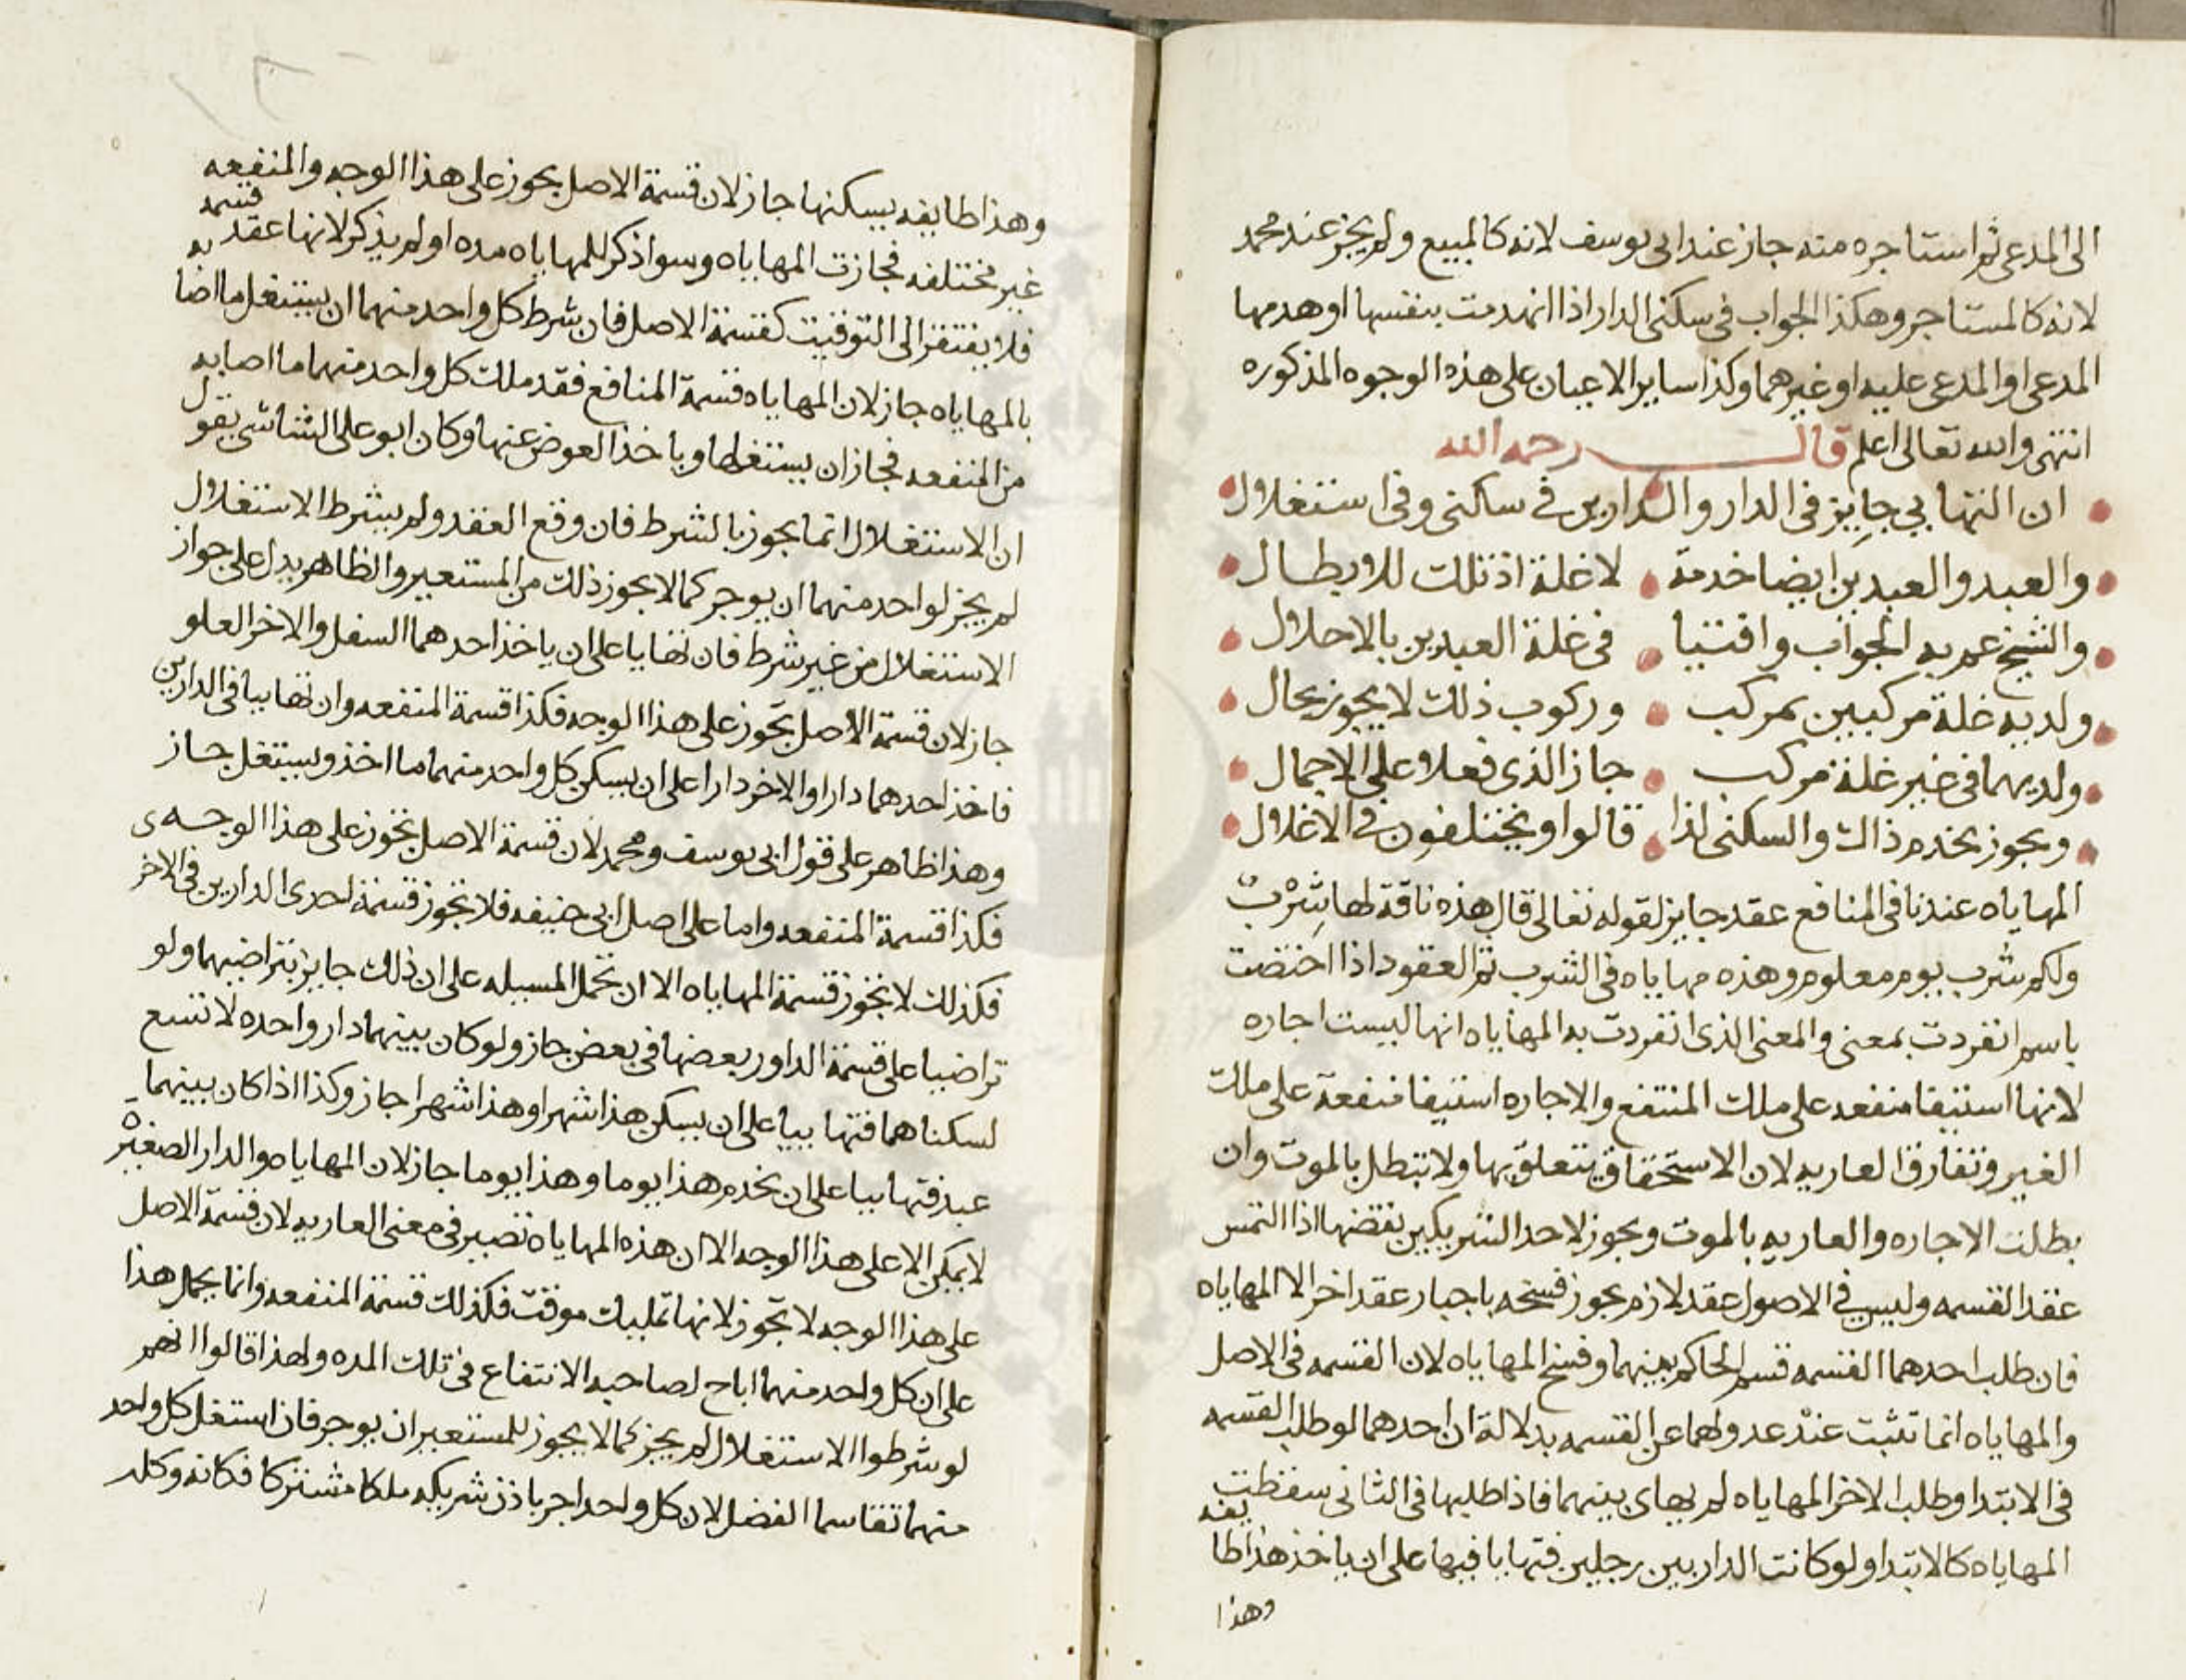 الى المدعى ثم استاجره منه جاز عند ابى يوسف لانه كالمبيع ولم يجز عند محمد
لانه كالمستاجر وهكذا الجواب فى سكنى الدار اذا انهدمت بنفسها او هدمها
المدعى او المدعى عليه او غيرهما وكذا ساير الاعيان على هذه الوجوه المذكوره
انتهى والله تعالى اعلم قال رحمه الله
ان التهايى جايز فى الدار والدارين فى سكنى وفى استغلال
والعبد والعبدين ايضا خدمة لا غلة اذ تلك للابطال
والشيخ عم به الجواب وافتيا فى غلة العبدين بالاحلال
ولديه غلة مركبين بمركب وركوب ذلك لا يجوز بحال
ولديهما فى غير غلة مركب جاز الذى فعلا على الاجمال
ويجوز يخدم ذاك والسكنى لذا قالوا ويختلفون فى الاغلال
المهاياه عندنا فى المنافع عقد جايز لقوله تعالى قال هذه ناقة لها شِرْبٌ
ولكم شرب يوم معلوم وهذه مهاياه فى الشرب ثم العقود اذا اختصت
باسم انفردت بمعنى والمعنى الذى انفردت به المهاياه انها ليست اجاره
لانها استيفا منفعه على ملك المنتفع والاجاره استيفا منفعة على ملك
الغير وتفارق العاريه لان الاستحقاق يتعلق بها ولا تبطل بالموت وان
بطلت الاجاره والعاريه بالموت ويجوز لاحد الشريكين نقضها اذا التمس
عقد القسمه وليس فى الاصول عقد لازم يجوز فسخه باجبار عقد اخر الا المهاياه
فان طلب احدهما القسمه قسم الحاكم بينهما وفسخ المهاياه لان القسمه فى الاصل
والمهاياه انما تثبت عند عدولهما عن القسمه بدلالة ان احدهما لو طلب القسمه
فى الابتدا وطلب الاخر المهاياه لم يهاى بينهما فاذا طلبها فى الثانى سقطت
المهاياه كالابتدا ولو كانت الدار بين رجلين فتهايا فيها على ان ياخذ هذا طا يفه
وهذا
وهذا طايفه يسكنها جاز لان قسمة الاصل يجوز على هذا الوجه والمنفعه
غير مختلفه فجازت المهاياه وسوا ذكر للمهاياه مده او لم يذكر لانها عقد قسمه
فلا يفتقر الى التوقيت كقسمة الاصل فان شرط كل واحد منهما ان يستغل ما اصا به
بالمهاياه جاز لان المهاياه قسمة المنافع فقد ملك كل واحد منهما ما اصابه
من المنفعه فجاز ان يستغلها وياخذ العوض عنها وكان ابو على الشاشى يقول
ان الاستغلال انما يجوز بالشرط فان وقع العقد ولم يشرط الاستغلال
لم يجز لواحد منهما ان يوجر كما لا يجوز ذلك من المستعير والظاهر يدل على جواز
الاستغلال من غير شرط فان تهايا على ان ياخذ احدهما السفل والاخر العلو
جاز لان قسمة الاصل تجوز على هذا الوجه فكذا قسمة المنفعه وان تهايا فى الدارين
فاخذ احدهما دارا والاخر دارا على ان يسكن كل واحد منهما ما اخذ ويستغل جاز
وهذا ظاهر على قول ابى يوسف ومحمد لان قسمة الاصل تجوز على هذا الوجه
فكذا قسمة المنفعه واما على اصل ابى حنيفه فلا تجوز قسمة احدى الدارين فى الاخر ى
فكذلك لا تجوز قسمة المهاياه الا ان تحمل المسيله على ان ذلك جايز بتراضيهما ولو
تراضيا على قسمة الداور بعضها فى بعض جاز ولو كان بينهما دار واحده لا تسع
لسكناهما فتهاييا على ان يسكن هذا شهرا وهذا شهرا جاز وكذا اذا كان بينهما
عبد فتهاييا على ان يخدم هذا يوما وهذا يوما جاز لان المهاياه والدار الصغيرة
لا يمكن الا على هذا الوجه الا ان هذه المهاياه تصير فى معنى العاريه لان قسمة الاصل
على هذا الوجه لا تجوز لانها تمليك موقت فكذلك قسمة المنفعه وانما يحمل هذا
على ان كل واحد منهما اباح لصاحبه الانتفاع فى تلك المده ولهذا قالوا انهم
لو شرطوا الاستغلال لم يجز كما لا يجوز للمستعير ان يوجر فان استغل كل واحد
منهما تقاسما الفضل لان كل واحد اجر باذن شريكه ملكا مشتركا فكانه وكله